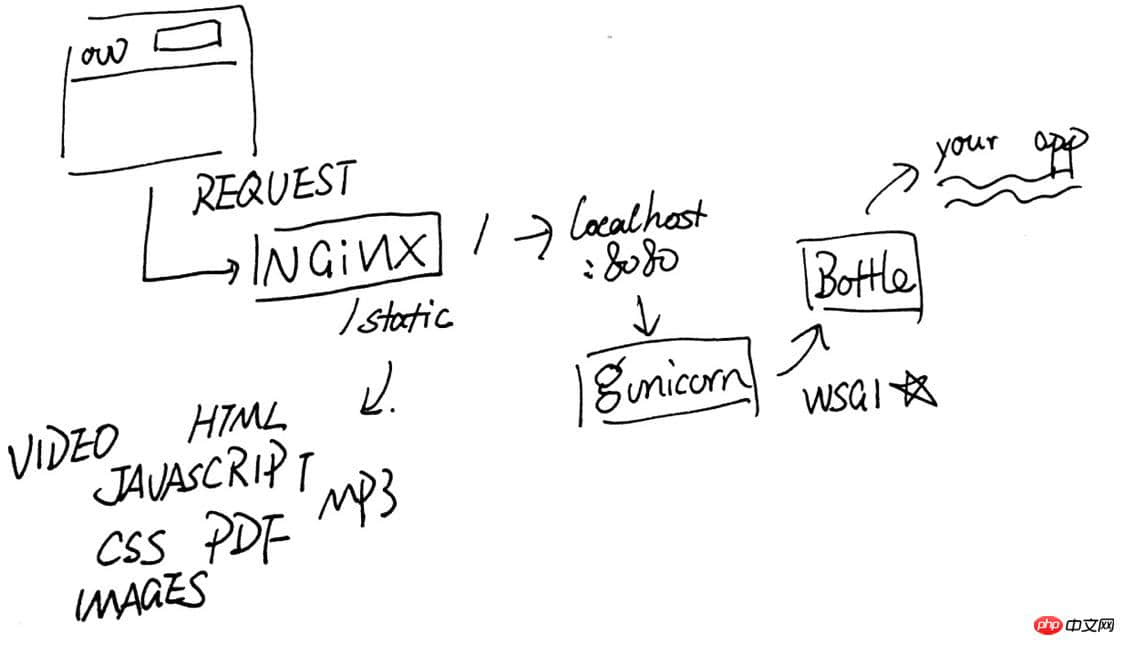 REQUEST
NGiNX
/ → localhost
:8080
/static
gunicorn
WSGI ☆
Bottle
your app
VIDEO HTML
JAVASCRIPT
MP3
CSS PDF
IMAGES
php 中文网